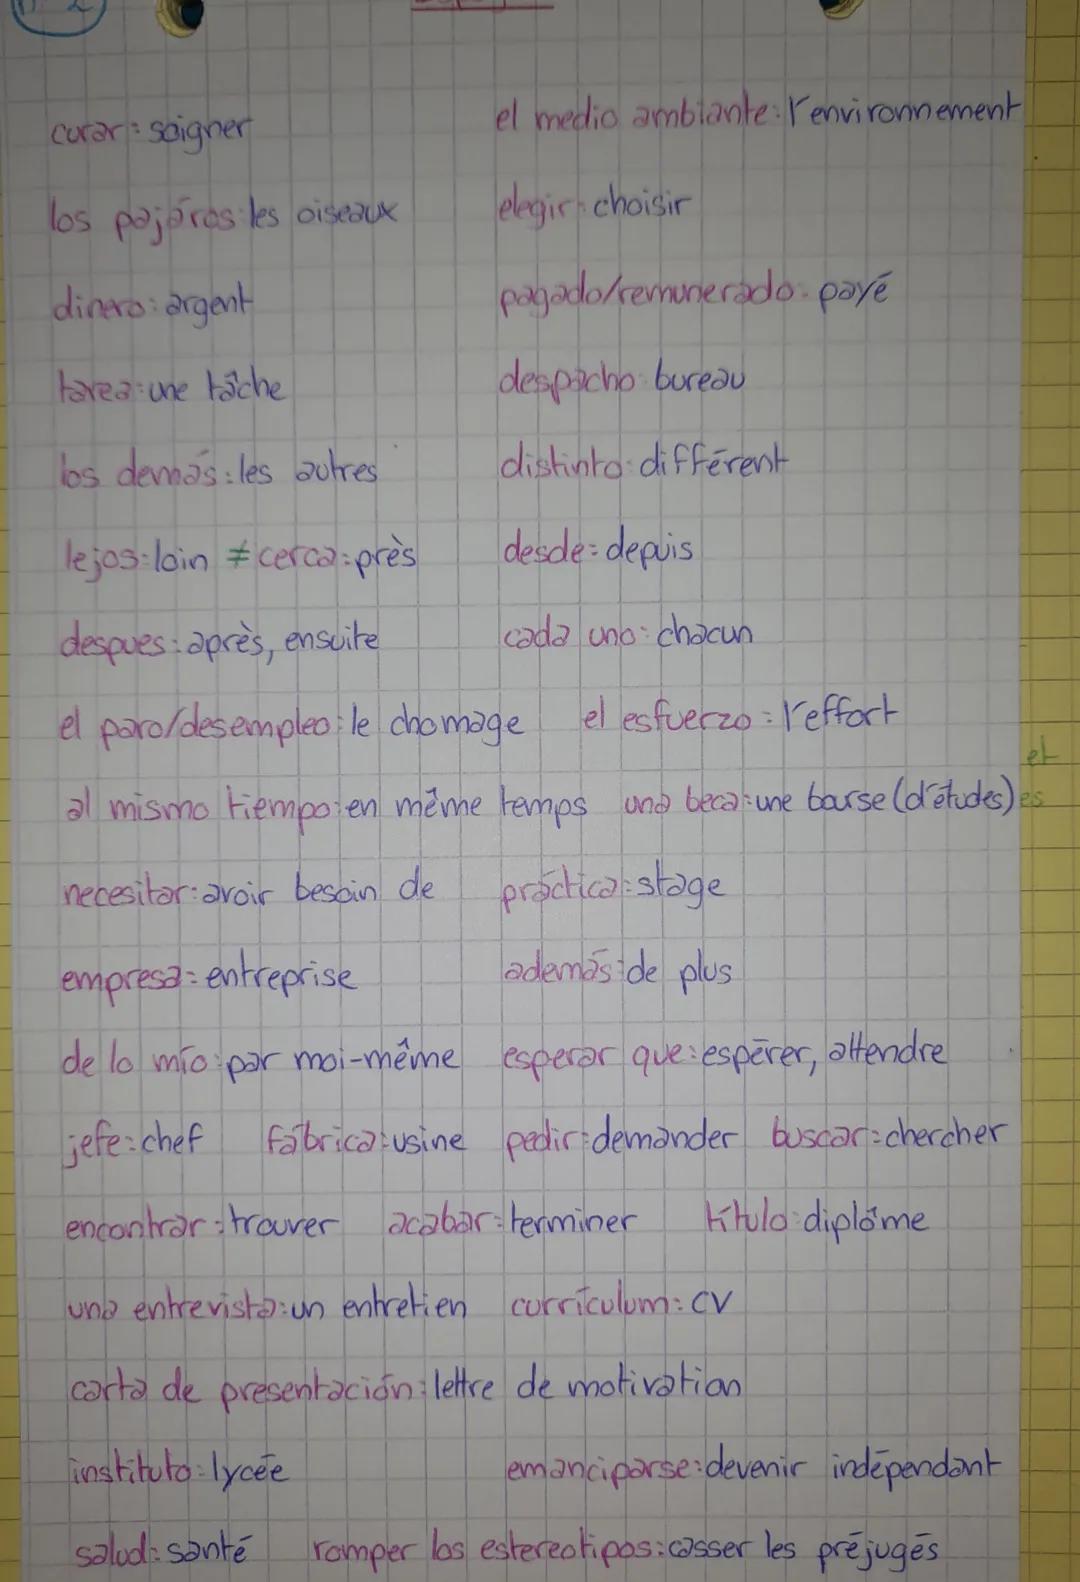 curar: soigner el medio ambiante: l'environnement
los pajáros: les oiseaux elegir: choisir
dinero: argent pagado/remunerado: payé
tarea: une tâche despacho: bureau
los demás: les autres distinto: différent
lejos: loin ≠ cerca: près desde: depuis
despues: après, ensuite cada uno: chacun
el paro/desempleo: le chomage el esfuerzo: l'effort
et
al mismo tiempo: en même temps una beca: une bourse (d'études) es
necesitar: avoir besoin de práctica: stage
empresa: entreprise además: de plus
de lo mío: par moi-même esperar que: espérer, attendre
jefe: chef fábrica: usine pedir: demander buscar: chercher
encontrar: trouver acabar: terminer título: diplôme
una entrevista: un entretien currículum: CV
carta de presentación: lettre de motivation
instituto: lycée emanciparse: devenir indépendant
salud: santé romper los estereotipos: casser les préjugés